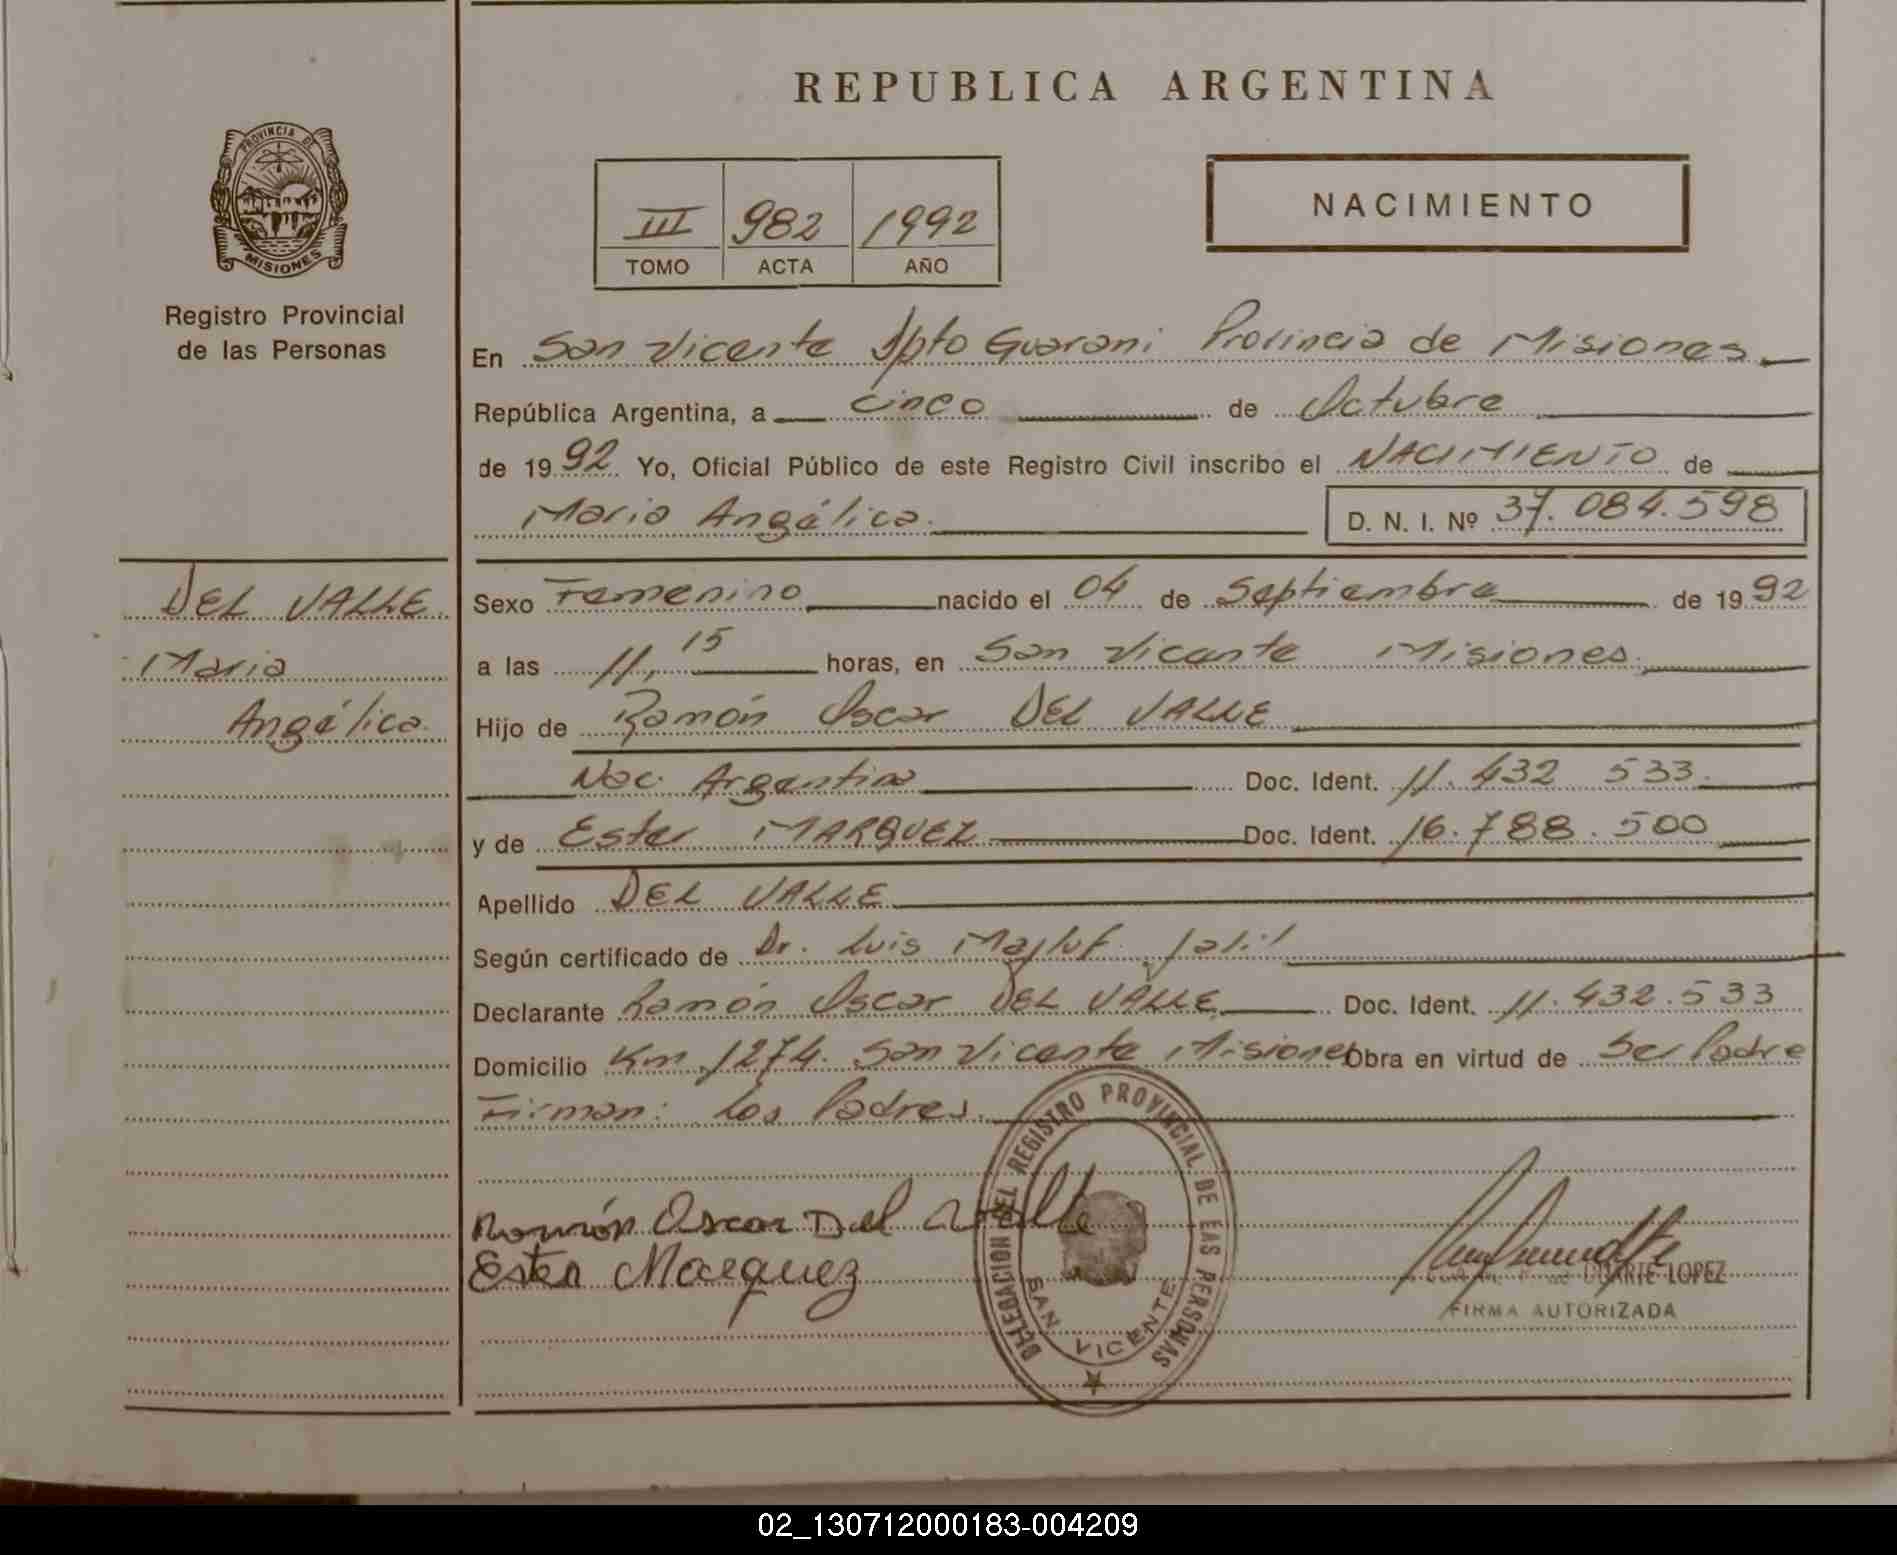 REPUBLICA ARGENTINA
PROVINCIA DE
MISIONES
Registro Provincial
de las Personas
III 982 1992
TOMO ACTA AÑO
NACIMIENTO
En San Vicente Dpto Guarani Provincia de Misiones
República Argentina, a cinco de Octubre
de 1992 Yo, Oficial Público de este Registro Civil inscribo el NACIMIENTO de
Maria Angélica. D. N. I. Nº 37.084.598
DEL VALLE
Maria
Angélica.
Sexo Femenino nacido el 04 de Septiembre de 1992
a las 11,15 horas, en San Vicente Misiones.
Hijo de Ramón Oscar DEL VALLE
Nac. Argentina Doc. Ident. 11.432 533.
y de Ester MARQUEZ Doc. Ident. 16.788.500
Apellido DEL VALLE
Según certificado de Dr. Luis Majluf Jalil
Declarante Ramón Oscar DEL VALLE Doc. Ident. 11.432.533
Domicilio Km 1274. San Vicente Misiones Obra en virtud de Ser Padre
Firman: Los Padres.
Ramón Oscar Del Valle
Ester Marquez
DELEGACION DEL REGISTRO PROVINCIAL DE LAS PERSONAS
SAN VICENTE
DUARTE LOPEZ
FIRMA AUTORIZADA
02_130712000183-004209